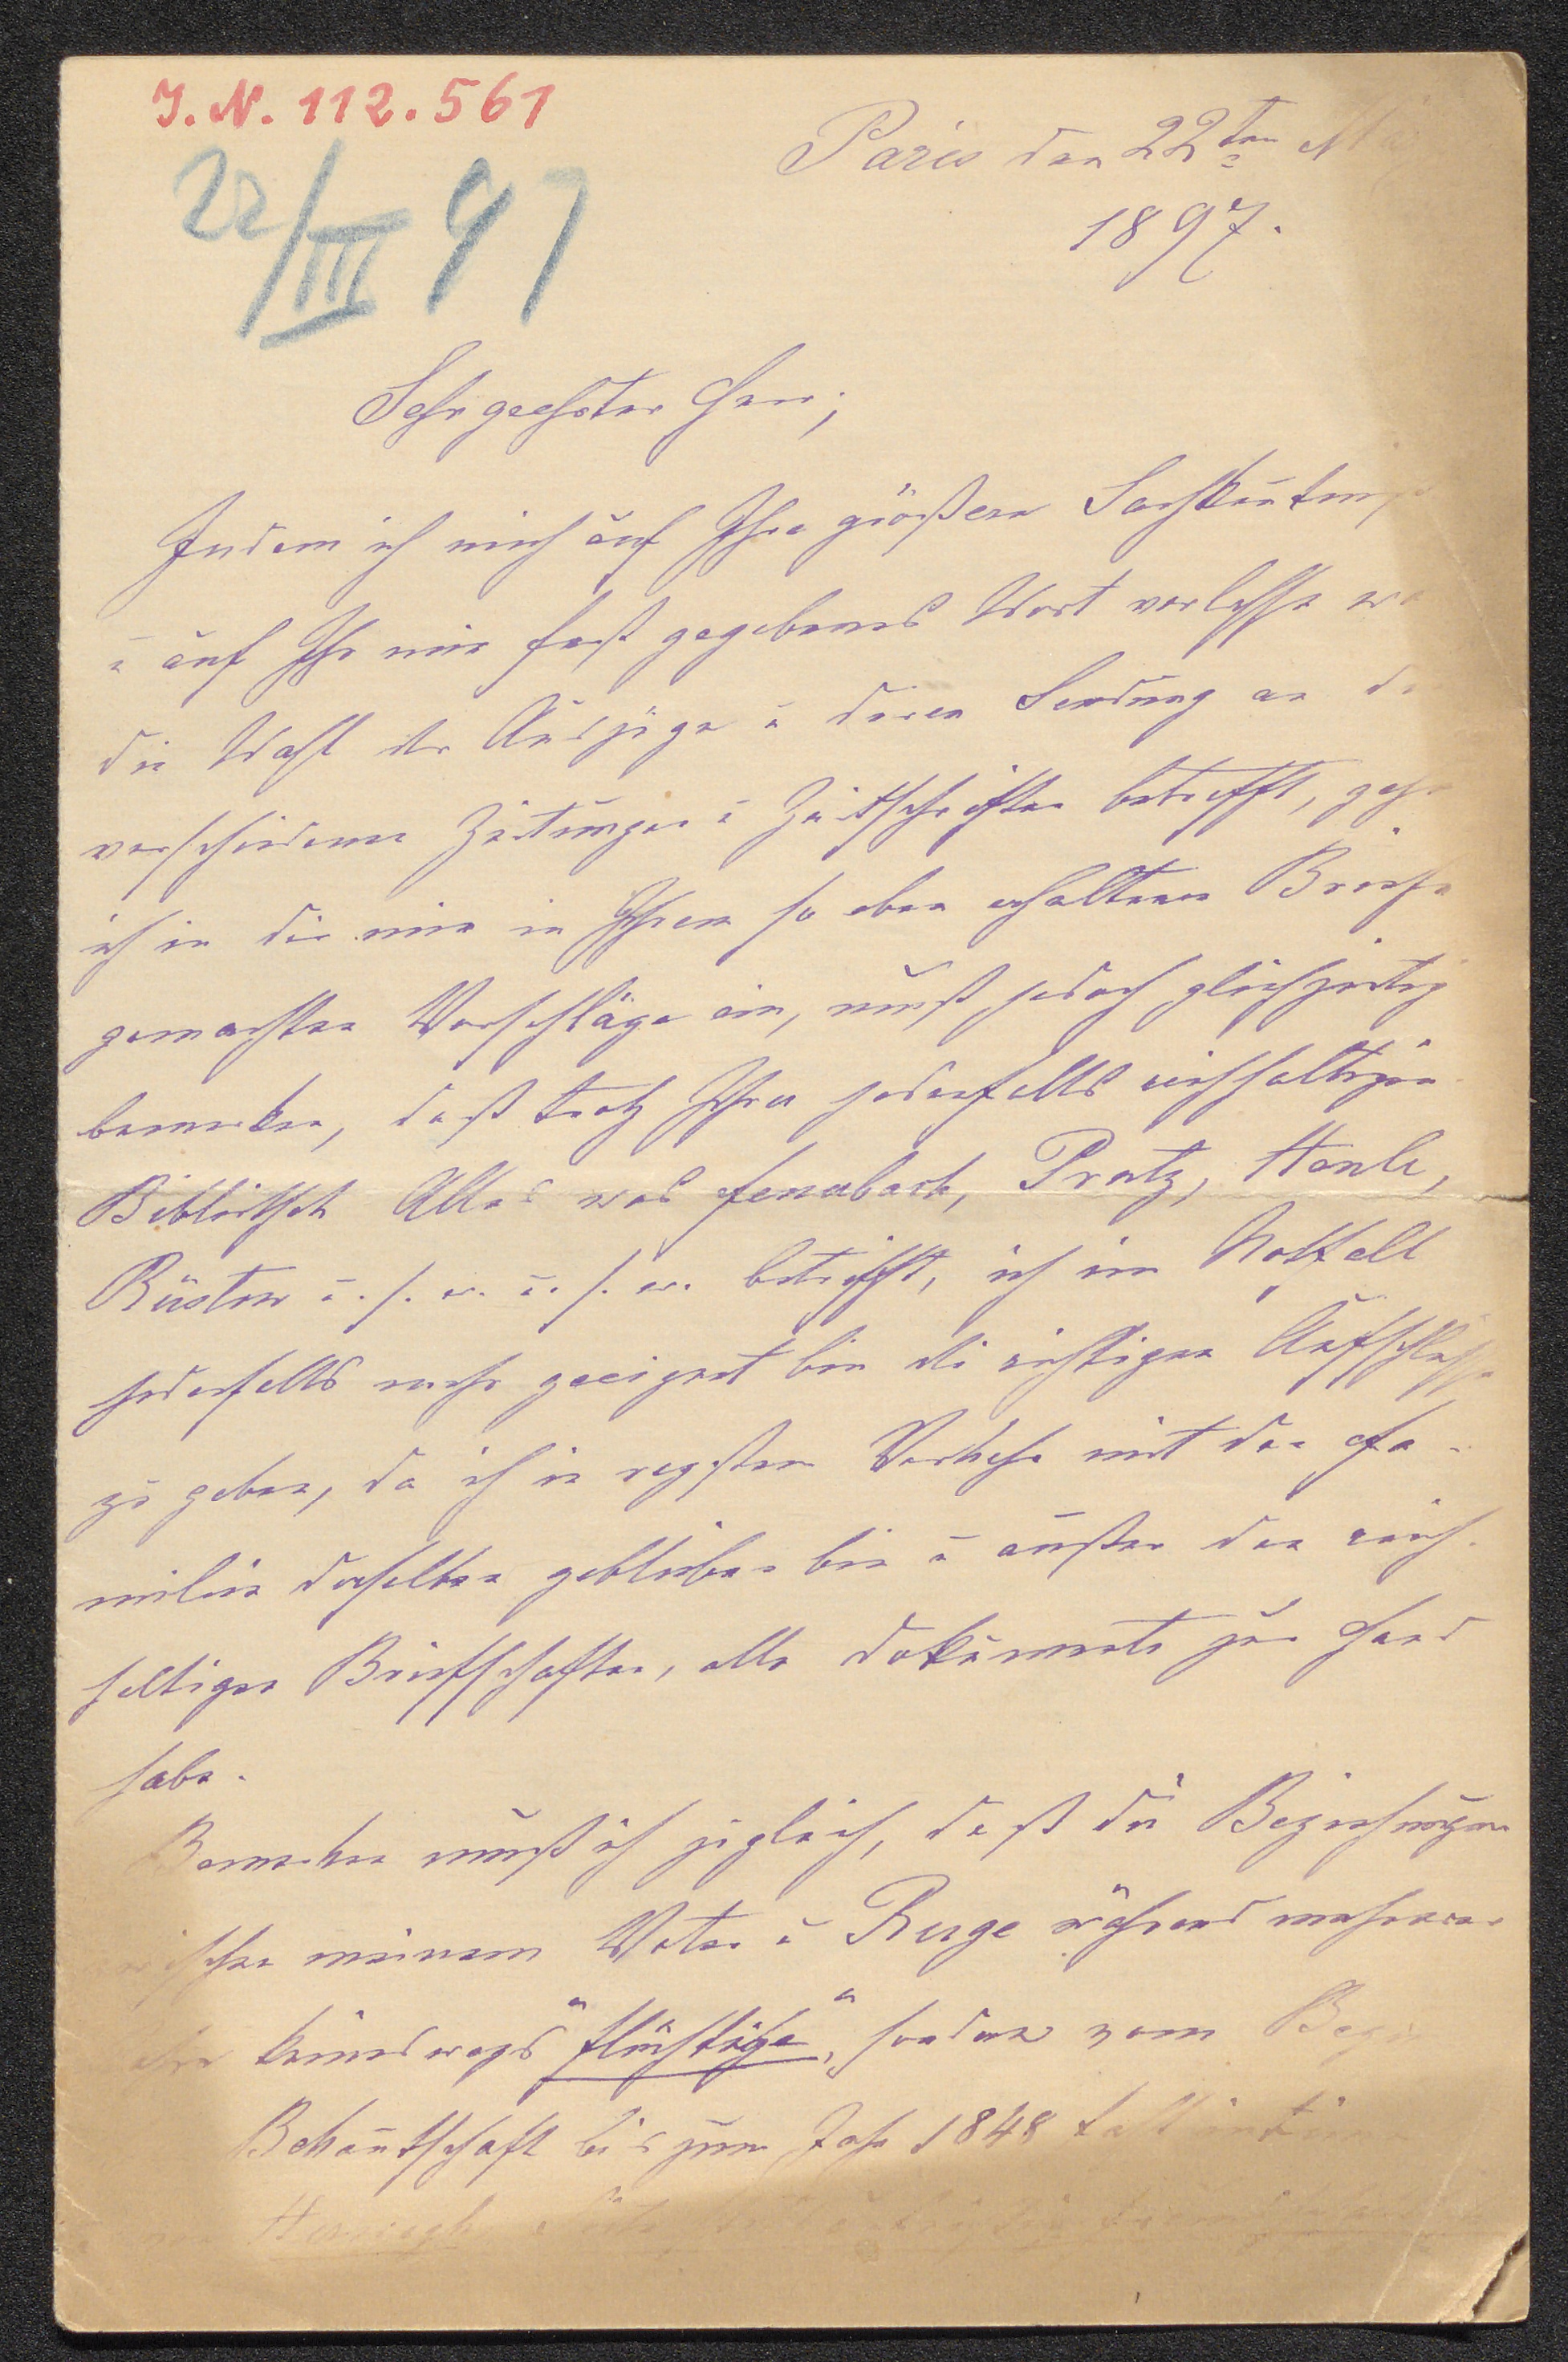 J. N. 112.561
22/III 97
Paris den 22ten
1897.
Sehr geehrter Herr;
Indem ich mich auf Ihre größere Sachkentniß
u auf Ihr mir fest gegebenes Wort verlasse
die Wahl der Auszüge u deren Sendung an
verschiedene Zeitungen u Zeitschriften betrifft, gehe
ich in die mir in Ihrem so eben erhaltenen Briefe
gemachten Vorschläge ein, muß jedoch gleichzeitig
bemerken, daß trotz Ihrer jedenfalls reichhaltigen
Bibliothek Alles was Feuerbach, Prutz, Henle,
Rüstow u. s. w. u. s. w. betrifft, ich im Notfall
jedenfalls mehr geeignet bin die richtigen Aufschlüsse
zu geben, da ich in regstem Verkehr mit der Fa-
milie derselben geblieben bin u außer den reich-
haltigen Briefschaften, alle Dokumente zur Hand
habe.
Bemerken muß ich zugleich, daß die Beziehungen
zwischen meinem Vater u Ruge während mehrerer
keineswegs "flüchtige", sondern vom
Bekantschaft bis zum Jahr 1848
Herwegh